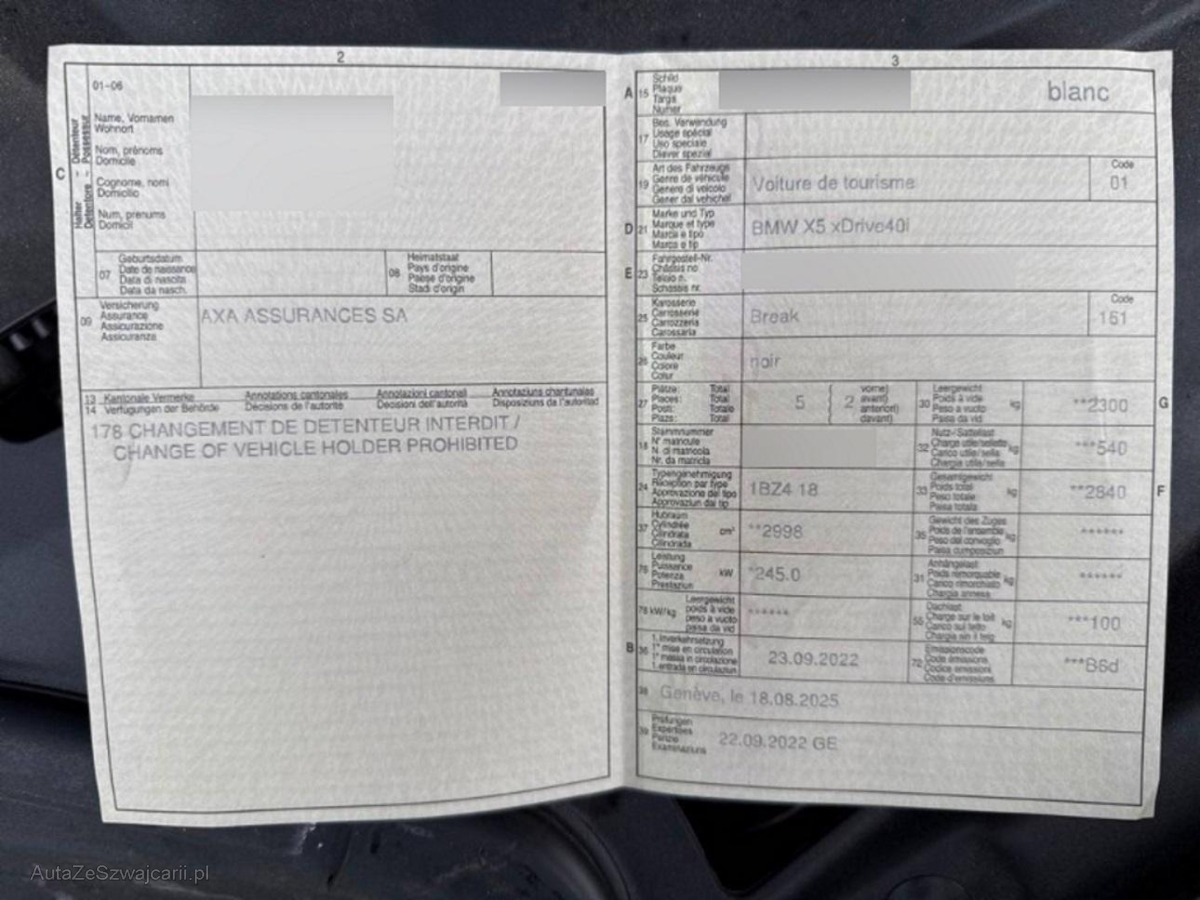 2
01-06
C
Halter - Détenteur
Detentore - Possessur
Name, Vornamen
Wohnort
Nom, prénoms
Domicile
Cognome, nomi
Domicilio
Num, prenums
Domicil
07
Geburtsdatum
Date de naissance
Data di nascita
Data da nasch.
08
Heimatstaat
Pays d'origine
Paese d'origine
Stadi d'origin
09
Versicherung
Assurance
Assicurazione
Assicuranza
AXA ASSURANCES SA
13 Kantonale Vermerke Annotations cantonales Annotazioni cantonali Annotaziuns chantunalas
14 Verfügungen der Behörde Décisions de l'autorité Decisioni dell'autorità Disposiziuns da l'autoritad
178 CHANGEMENT DE DETENTEUR INTERDIT /
CHANGE OF VEHICLE HOLDER PROHIBITED
3
A 15
Schild
Plaque
Targa
Numer
blanc
17
Bes. Verwendung
Usage spécial
Uso speciale
Diever spezial
19
Art des Fahrzeugs
Genre de véhicule
Genere di veicolo
Gener dal vehichel
Voiture de tourisme
Code
01
D 21
Marke und Typ
Marque et type
Marca e tipo
Marca e tip
BMW X5 xDrive40i
E 23
Fahrgestell-Nr.
Châssis no
Telaio n.
Schassis nr.
25
Karosserie
Carrosserie
Carrozzeria
Carossaria
Break
Code
151
26
Farbe
Couleur
Colore
Colur
noir
27
Plätze: Total
Places: Total
Posti: Totale
Plazs: Total
5
2
vorne)
avant)
anteriori)
davant)
30
Leergewicht
Poids à vide
Peso a vuoto
Paisa da vid
kg
**2300
G
18
Stammnummer
N° matricule
N. di matricola
Nr. da matricla
32
Nutz-/Sattellast
Charge utile/sellette
Carico utile/sella
Chargia utila/sella
kg
***540
24
Typengenehmigung
Réception par type
Approvazione del tipo
Approvaziun dal tip
1BZ4 18
33
Gesamtgewicht
Poids total
Peso totale
Paisa totala
kg
**2840
F
37
Hubraum
Cylindrée
Cilindrata
Cilindrada
cm³
**2998
35
Gewicht des Zuges
Poids de l'ensemble
Peso del convoglio
Paisa cumposiziun
******
76
Leistung
Puissance
Potenza
Prestaziun
kW
*245.0
31
Anhängelast
Poids remorquable
Carico rimorchiato
Chargia annexa
kg
******
78 kW/kg
Leergewicht
poids à vide
peso a vuoto
paisa da vid
******
55
Dachlast
Charge sur le toit
Carico sul tetto
Chargia sin il tetg
kg
***100
B 36
1. Inverkehrsetzung
1re mise en circulation
1a messa in circolazione
1. entrada en circulaziun
23.09.2022
72
Emissionscode
Code émissions
Codice emissioni
Code d'emissiuns
***B6d
38 Genève, le 18.08.2025
39
Prüfungen
Expertises
Perizie
Examinaziuns
22.09.2022 GE
AutaZeSzwajcarii.pl